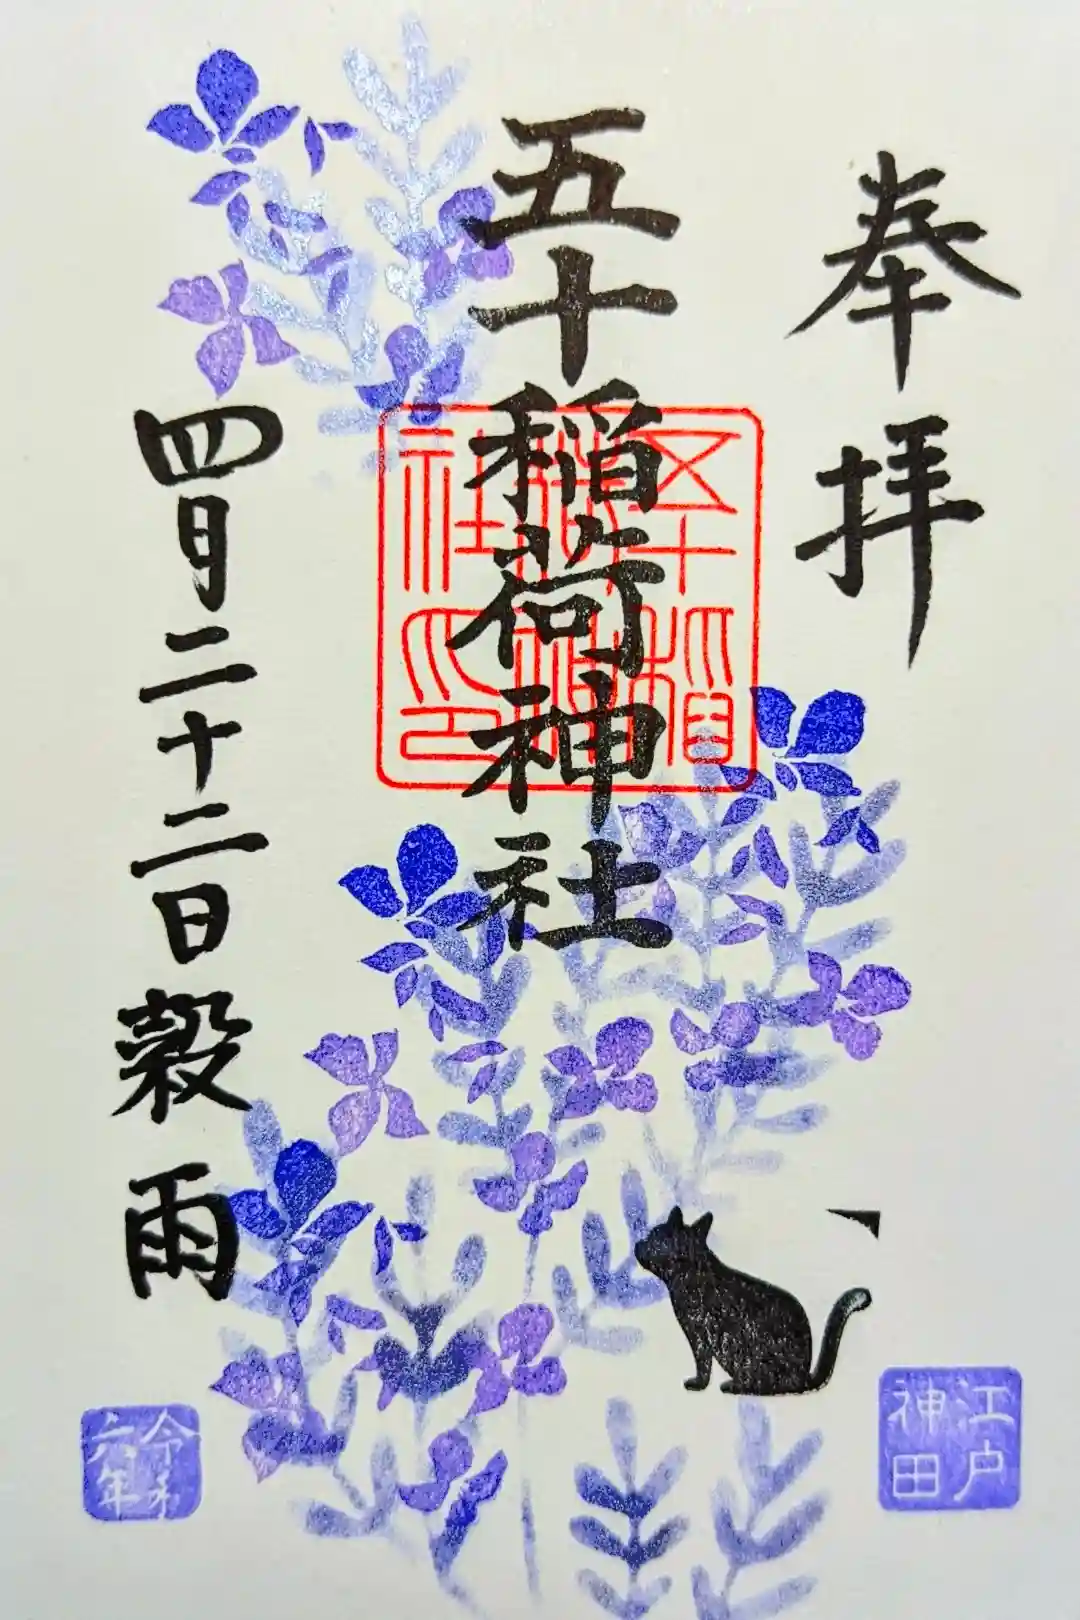 奉拝
五十稲荷神社
四月二十二日穀雨
五十稲荷神社印
江戸神田
令和六年